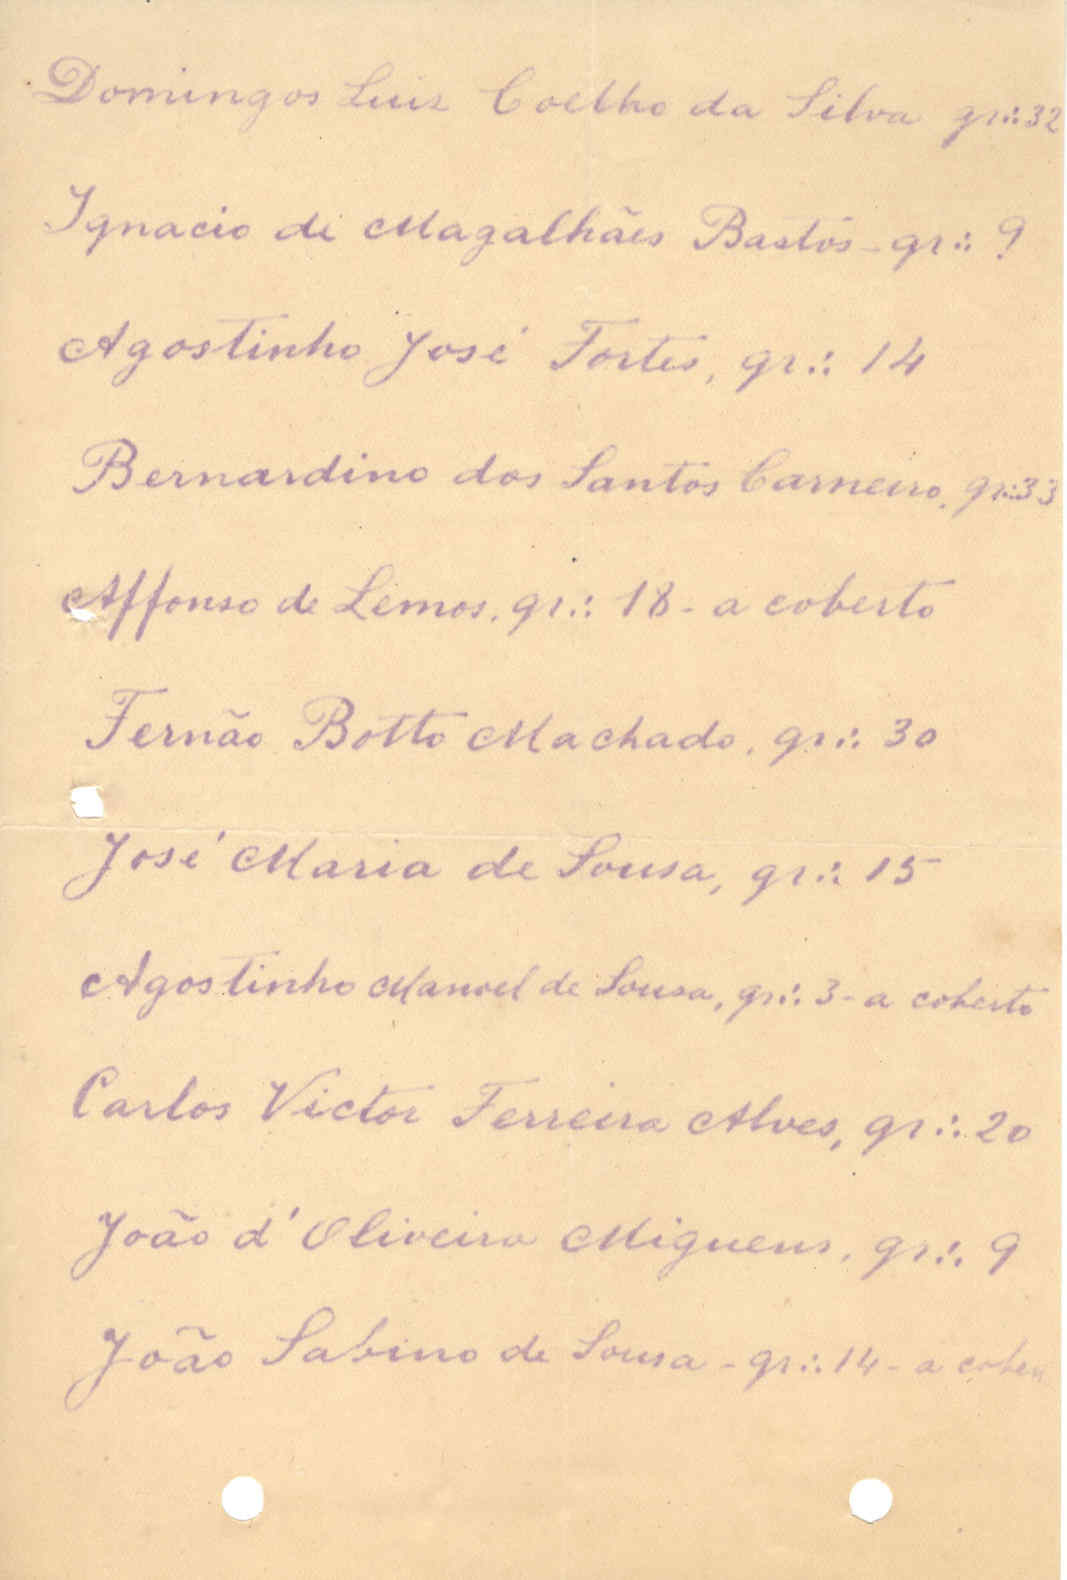 Domingos Luiz Coelho da Silva gr∴ 32
Ignacio de Magalhães Bastos - gr∴ 9
Agostinho José Fortes, gr∴ 14
Bernardino dos Santos Carneiro, gr∴ 33
Affonso de Lemos, gr∴ 18 - a coberto
Fernão Botto Machado, gr∴ 30
José Maria de Sousa, gr∴ 15
Agostinho Manoel de Sousa, gr∴ 3 - a coberto
Carlos Victor Ferreira Alves, gr∴ 20
João d'Oliveira Miguens, gr∴ 9
João Sabino de Sousa - gr∴ 14 - a